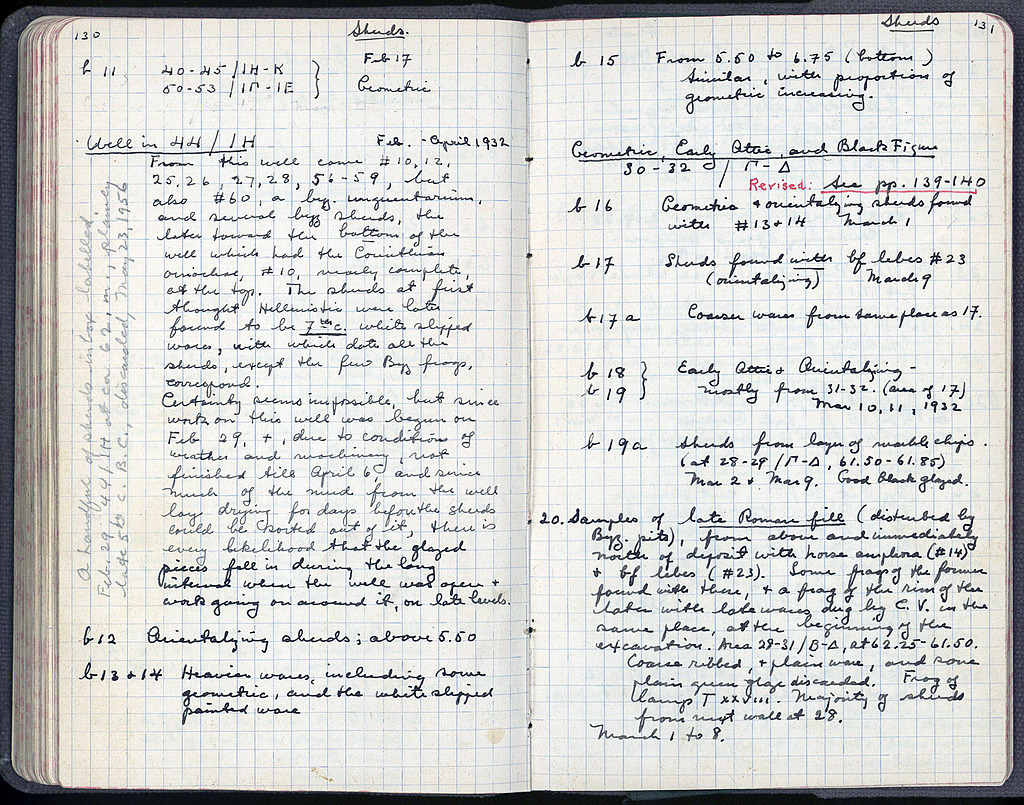 130
Sherds.
b 11 40-45 / ΙΗ-Κ } Feb 17
50-53 / ΙΓ-ΙΕ Geometric
Well in 44 / ΙΗ Feb. - April 1932
From this well came #10, 12,
25, 26, 27, 28, 56-59, but
also #60, a byz. unguentarium,
and several byz sherds, the
later toward the bottom of the
well which had the Corinthian
oinochoe, #10, nearly complete,
at the top. The sherds at first
thought Hellenistic were later
found to be 7th c. white slipped
wares, with which date all the
sherds, except the few Byz frags,
correspond.
Certainty seems impossible, but since
work on this well was begun on
Feb 29, +, due to condition of
weather and machinery, not
finished till April 6, and since
much of the mud from the well
lay drying for days before the sherds
could be sorted out of it, there is
every likelihood that the glazed
pieces fell in during the long
interval when the well was open +
work going on around it, on late levels.
b12 Orientalizing sherds; above 5.50
b13 + 14 Heavier wares, including some
geometric, and the white slipped
painted ware
A handful of sherds in box labelled
Feb. 29. 44/ΙΗ at ca 62, m, plainly
late 5th c. B.C., discarded, May 23, 1956
Sherds
131
b 15 From 5.50 to 6.75 (bottom)
Similar, with proportion of
geometric increasing.
Geometric, Early Attic, and Black Figure
30-32 / Γ-Δ
Revised: See pp. 139-140
b 16 Geometric + orientalizing sherds found
with #13 + 14 March 1
b 17 Sherds found with bf lebes #23
(orientalizing) March 9
b 17 a Coarser wares from same place as 17.
b 18 } Early Attic + Orientalizing -
b 19 mostly from 31-32. (area of 17)
Mar 10, 11, 1932
b 19a Sherds from layer of marble chips.
(at 28-29 / Γ-Δ, 61.50-61.85)
Mar 2 + Mar 9. Good black glazed.
20. Samples of late Roman fill (disturbed by
Byz. pits), from above and immediately
north of deposit with horse amphora (#14)
+ bf lebes (#23). Some frags of the former
found with these, + a frag of the rim of the
later with late wares dug by C. V. in the
same place, at the beginning of the
excavation. Area 28-31 / Β-Δ, at 62.25-61.50.
Coarse ribbed, + plain ware, and some
plain green glaze discarded. Frag of
lamps T XXVIII. Majority of sherds
from next wall at 28.
March 1 to 8.